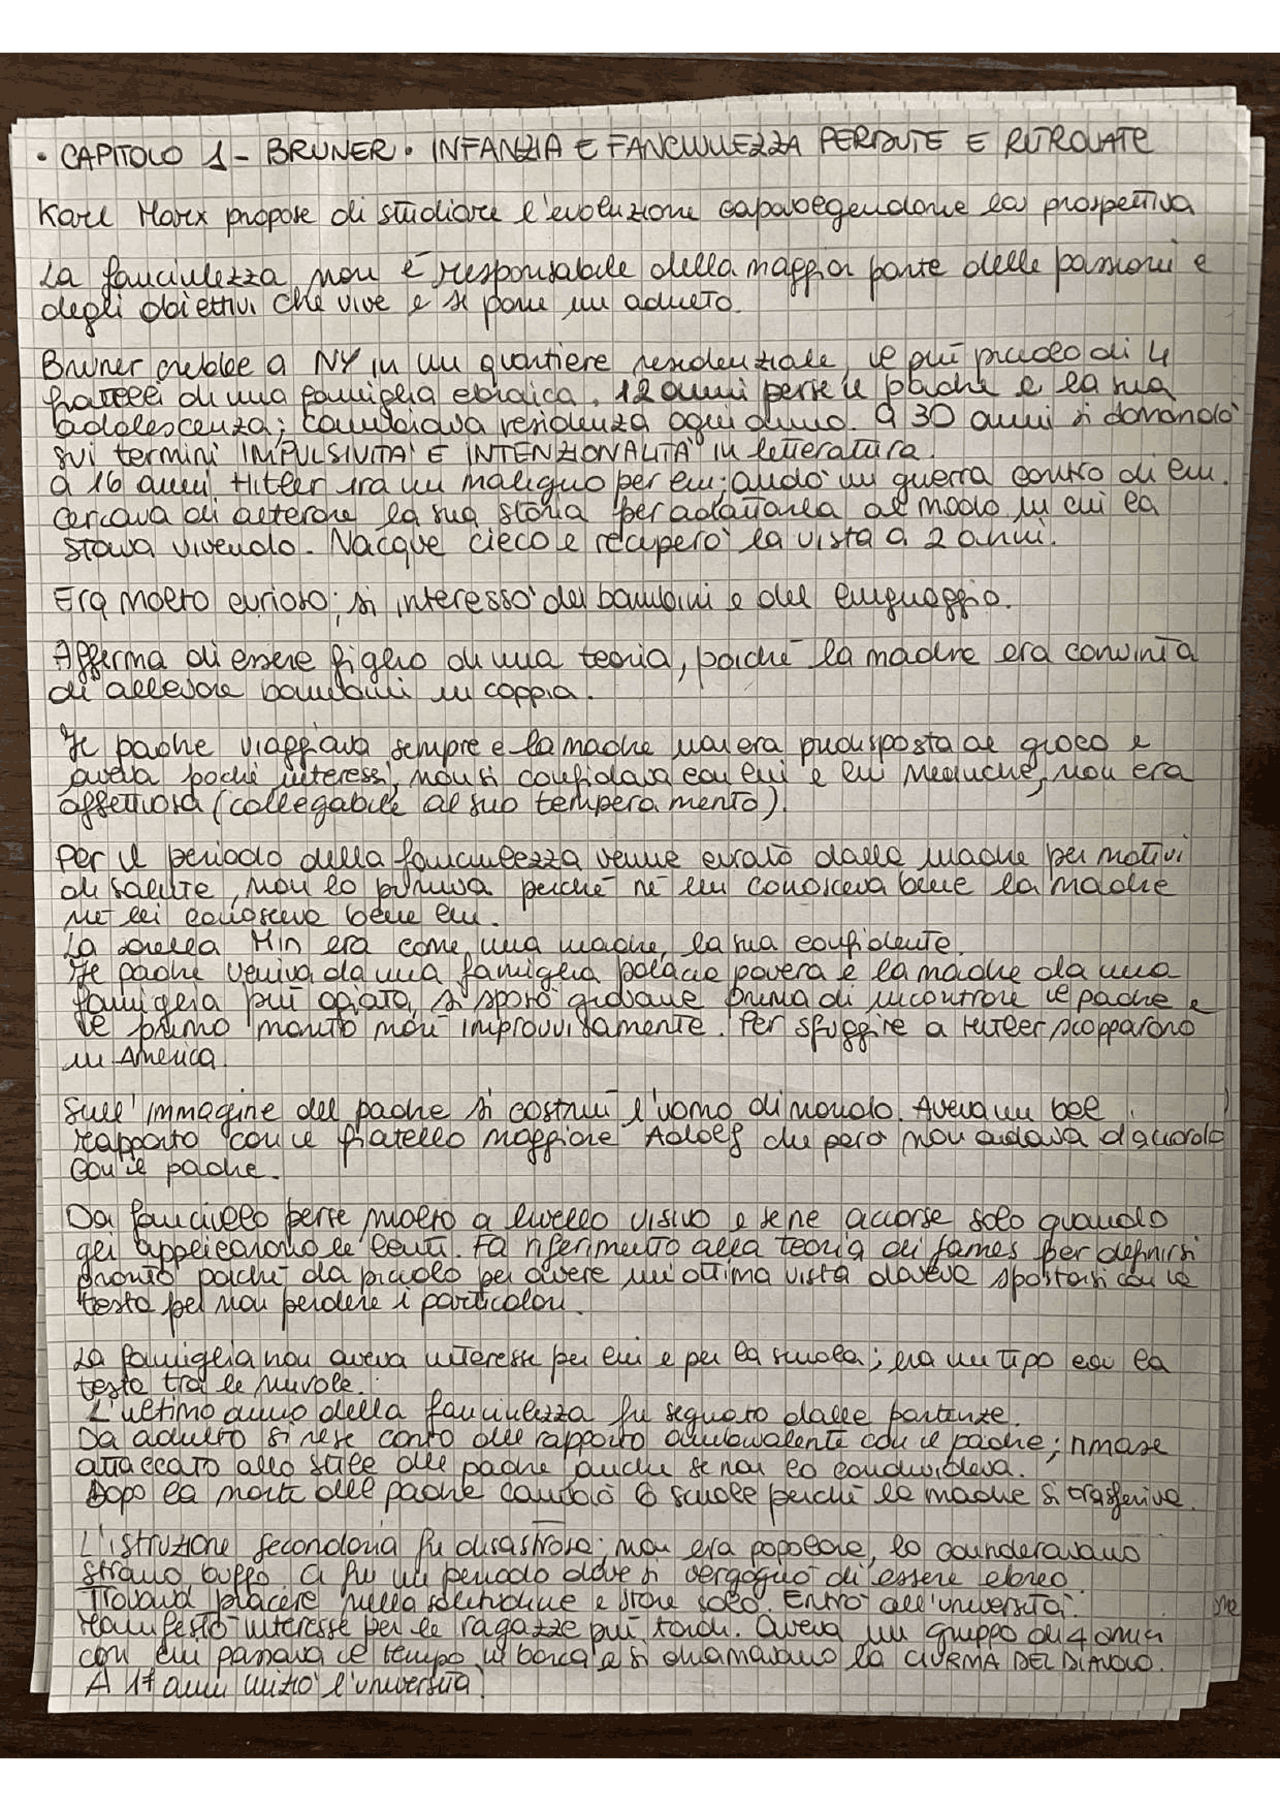 • CAPITOLO 1 - BRUNER • INFANZIA E FANCIULLEZZA PERDUTE E RITROVATE
Karl Marx propose di studiare l'evoluzione capovolgendone la prospettiva
La fanciullezza non è responsabile della maggior parte delle passioni e
degli obiettivi che vive e si pone un adulto.
Bruner crebbe a NY in un quartiere residenziale, il più piccolo di 4
fratelli di una famiglia ebraica. 12 anni perse il padre e la sua
adolescenza; cambiava residenza ogni anno. A 30 anni si domandò
sui termini IMPULSIVITA' E INTENZIONALITA' in letteratura.
A 16 anni Hitler era un maligno per lui; andò in guerra contro di lui.
Cercava di alterare la sua storia per adattarla al modo in cui la
stava vivendo. Nacque cieco e recuperò la vista a 2 anni.
Era molto curioso; si interessò dei bambini e del linguaggio.
Afferma di essere figlio di una teoria, poiché la madre era convinta
di allevare bambini in coppia.
Il padre viaggiava sempre e la madre non era predisposta al gioco e
aveva pochi interessi, non si confidava con lui e lui neanche, non era
affettuosa (collegabile al suo temperamento).
Per il periodo della fanciullezza venne curato dalla madre per motivi
di salute, non lo puniva perché né lui conosceva bene la madre
né lei conosceva bene lui.
La sorella Min era come una madre, la sua confidente.
Il padre veniva da una famiglia polacca povera e la madre da una
famiglia più agiata, si sposò giovane prima di incontrare il padre e
il primo marito morì improvvisamente. Per sfuggire a Hitler scapparono
in America.
Sull'immagine del padre si costruì l'uomo di mondo. Aveva un bel
rapporto con il fratello maggiore Adolf che però non andava d'accordo
con il padre.
Da fanciullo perse molto a livello visivo e se ne accorse solo quando
gli applicarono le lenti. Fa riferimento alla teoria di James per definirsi
pronto poiché da piccolo per avere un'ottima vista doveva spostarsi con la
testa per non perdere i particolari.
La famiglia non aveva interesse per lui e per la scuola; era un tipo con la
testa tra le nuvole.
L'ultimo anno della fanciullezza fu segnato dalle partenze.
Da adulto si rese conto del rapporto ambivalente con il padre; rimase
attaccato allo stile del padre anche se non lo condivideva.
Dopo la morte del padre cambiò 6 scuole perché la madre si trasferiva.
L'istruzione secondaria fu disastrosa; non era popolare, lo consideravano
strano buffo. Ci fu un periodo dove si vergognò di essere ebreo.
Trovava piacere nella solitudine e stare solo. Entrò all'università.
Manifestò interesse per le ragazze più tardi. Aveva un gruppo di 4 amici
con cui passava il tempo in barca e si chiamavano la CIURMA DEL DIAVOLO.
A 17 anni iniziò l'università.